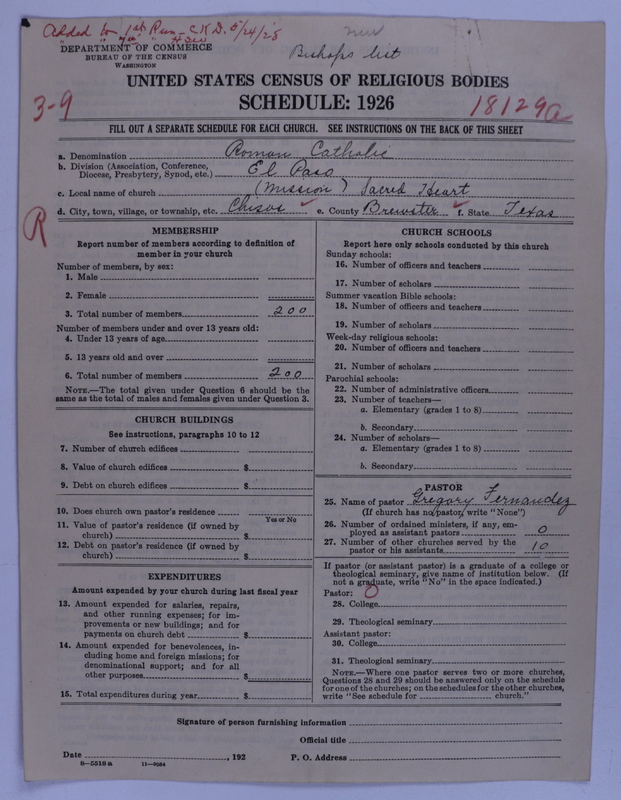 Added to 1st Run - C.K.D. 5/24/28
DEPARTMENT OF COMMERCE
BUREAU OF THE CENSUS
WASHINGTON
Bishops list
UNITED STATES CENSUS OF RELIGIOUS BODIES
SCHEDULE: 1926
3-9
18129a
FILL OUT A SEPARATE SCHEDULE FOR EACH CHURCH. SEE INSTRUCTIONS ON THE BACK OF THIS SHEET
a. Denomination Roman Catholic
b. Division (Association, Conference, Diocese, Presbytery, Synod, etc.) El Paso
c. Local name of church (Mission) Sacred Heart
d. City, town, village, or township, etc. Chisos ✓ e. County Brewster ✓ f. State Texas
R
MEMBERSHIP
Report number of members according to definition of
member in your church
Number of members, by sex:
1. Male
2. Female
3. Total number of members 200
Number of members under and over 13 years old:
4. Under 13 years of age
5. 13 years old and over
6. Total number of members 200
NOTE.—The total given under Question 6 should be the
same as the total of males and females given under Question 3.
CHURCH BUILDINGS
See instructions, paragraphs 10 to 12
7. Number of church edifices
8. Value of church edifices $
9. Debt on church edifices $
10. Does church own pastor's residence
Yes or No
11. Value of pastor's residence (if owned by
church) $
12. Debt on pastor's residence (if owned by
church) $
EXPENDITURES
Amount expended by your church during last fiscal year
13. Amount expended for salaries, repairs,
and other running expenses; for im-
provements or new buildings; and for
payments on church debt $
14. Amount expended for benevolences, in-
cluding home and foreign missions; for
denominational support; and for all
other purposes $
15. Total expenditures during year $
CHURCH SCHOOLS
Report here only schools conducted by this church
Sunday schools:
16. Number of officers and teachers
17. Number of scholars
Summer vacation Bible schools:
18. Number of officers and teachers
19. Number of scholars
Week-day religious schools:
20. Number of officers and teachers
21. Number of scholars
Parochial schools:
22. Number of administrative officers
23. Number of teachers—
a. Elementary (grades 1 to 8)
b. Secondary
24. Number of scholars—
a. Elementary (grades 1 to 8)
b. Secondary
PASTOR
25. Name of pastor Gregory Fernandez
(If church has no pastor, write "None")
26. Number of ordained ministers, if any, em-
ployed as assistant pastors 0
27. Number of other churches served by the
pastor or his assistants 10
If pastor (or assistant pastor) is a graduate of a college or
theological seminary, give name of institution below. (If
not a graduate, write "No" in the space indicated.)
Pastor: 0
28. College
29. Theological seminary
Assistant pastor:
30. College
31. Theological seminary
NOTE.—Where one pastor serves two or more churches,
Questions 28 and 29 should be answered only on the schedule
for one of the churches; on the schedules for the other churches,
write "See schedule for church."
Signature of person furnishing information
Official title
Date , 192 P. O. Address
8—5518a 11—9084